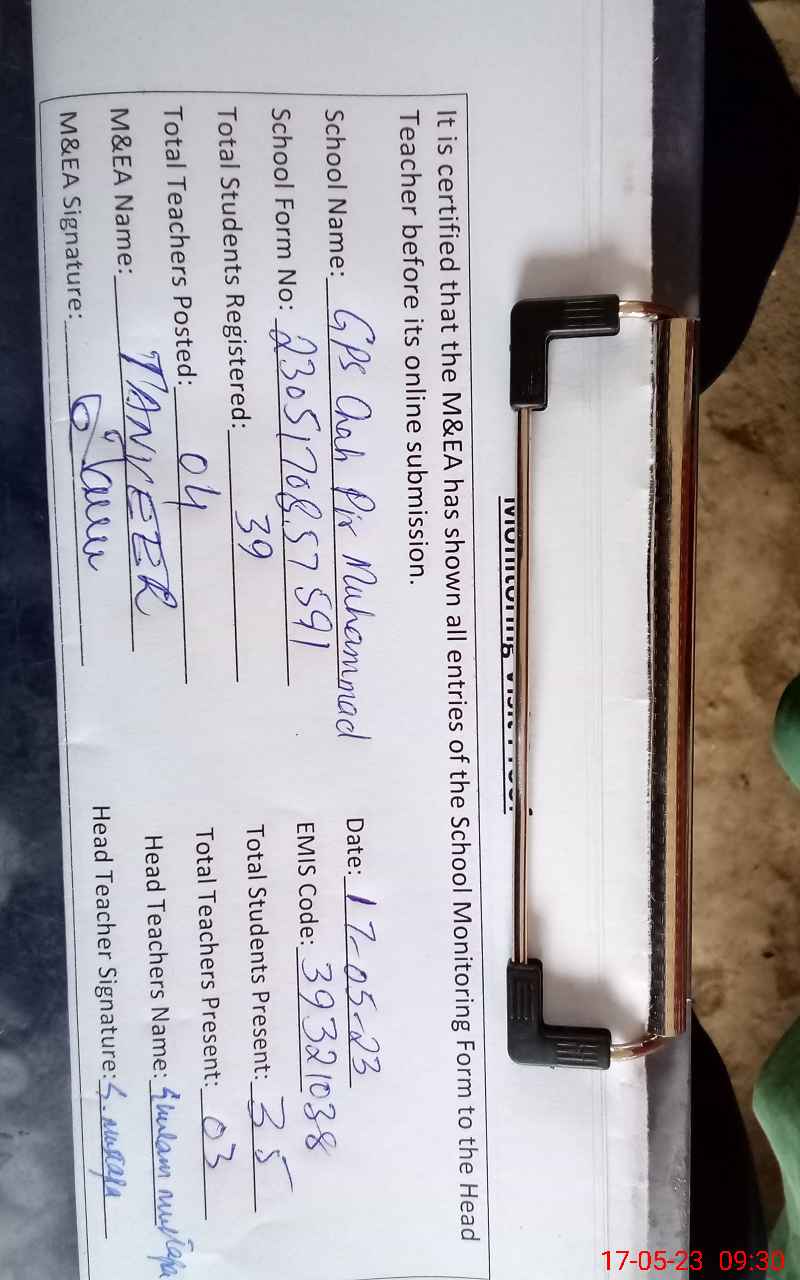 Monitoring Visit Proof
It is certified that the M&EA has shown all entries of the School Monitoring Form to the Head
Teacher before its online submission.
School Name: GPS Chah Pir Muhammad Date: 17-05-23
School Form No: 2305170857591 EMIS Code: 39321038
Total Students Registered: 39 Total Students Present: 35
Total Teachers Posted: 04 Total Teachers Present: 03
M&EA Name: TANVEER Head Teachers Name: Ghulam mustafa
M&EA Signature: Head Teacher Signature: G. mustafa
17-05-23 09:30